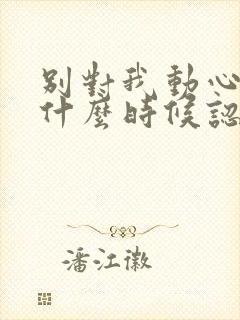 別對我動心
什麼時候認
潘江徽